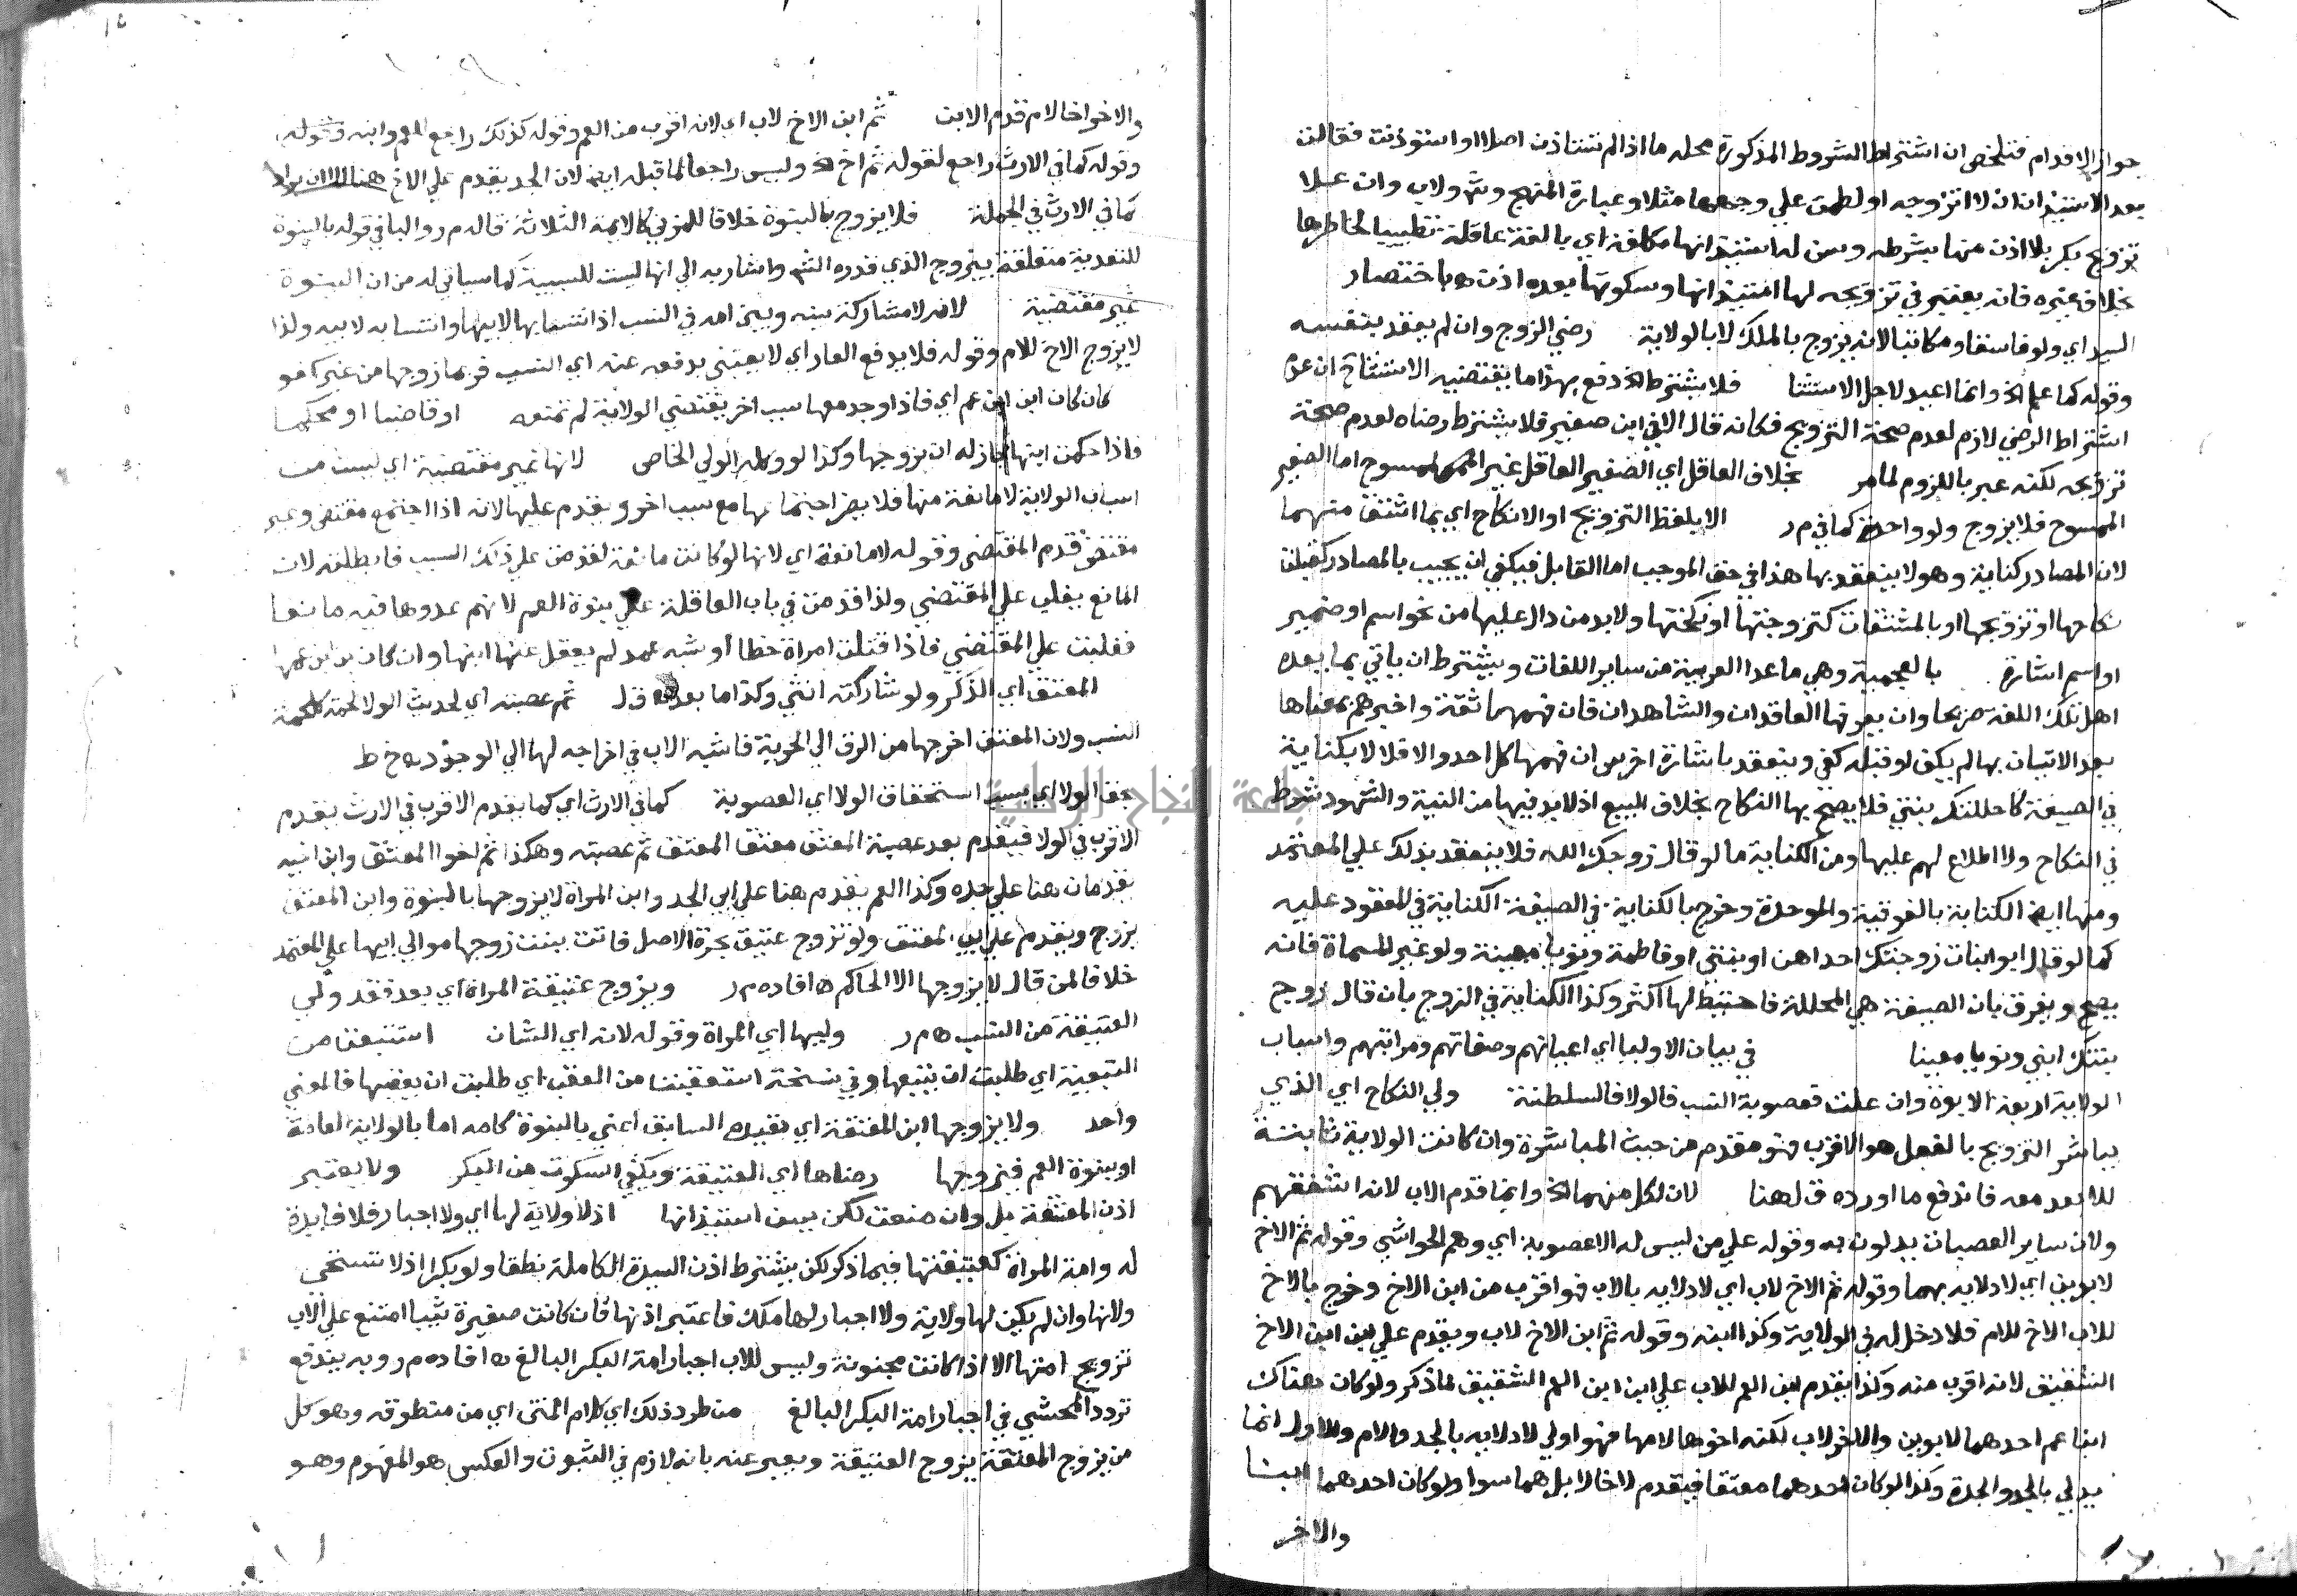 جواز الاقدام فتلخص ان اشتراط الشروط المذكورة محله ما اذا لم تستاذن اصلا او استوذنت فقالت
بعد الاستيذان ان لا اتزوجه او لطمت علي وجهها مثلا وعبارة المنهج وش ولاب وان علا
تزويج بكر بلا اذن منها بشرطه وسن له استيذانها مكلفة اي بالغة عاقلة تطييبا لخاطرها
بخلاف غيره فانه يعتبر في تزويجه لها استيذانها وسكوتها بعده اذن ه باختصار
السيد اي ولو فاسقا ومكاتبا لانه يزوج بالملك لا بالولاية رضي الزوج وان لم يعقد بنفسه
وقوله كما علم الخ وانما اعيد لاجل الاستثنا فلا يشترط الخ دفع بهذا ما يقتضيه الاستثناح ان عدم
اشتراط الرضي لازم لعدم صحة التزويج فكانه قال الا في ابن صغير فلا يشترط رضاه لعدم صحة
تزويجه لكنه عبر باللزوم لما مر بخلاف العاقل اي الصغير العاقل غير الممسوح اما الصغير
الممسوح فلا يزوج ولو واحدة كما في م ر الا بلفظ التزويج او الانكاح اي بما اشتق منهما
لان المصادر كناية وهو لا ينعقد بها هذا في حق الموجب اما القابل فيكفي ان يجيب بالمصادر كقبلت
نكاحها او تزويجها او بالمشتقات كتزوجتها او نكحتها ولا بد من دال عليها من نحو اسم او ضمير
او اسم اشارة بالعجمية وهي ما عدا العربية من ساير اللغات ويشترط ان ياتي بما يعده
اهل تلك اللغة صريحا وان يعرفها العاقدان والشاهدان فان فهمهما ثقة واخبرهم بمعناها
بعد الاتيان بها لم يكف او قبله كفي وينعقد باشارة اخرس ان فهمها كل احد والا فلا لا بكناية
في الصيغة كاحللتك بنتي فلا يصح بها النكاح بخلاف البيع اذ لا بد فيها من النية والشهود شرط
في النكاح ولا اطلاع لهم عليها ومن الكناية ما لو قال زوجك الله فلا ينعقد بذلك علي المعتمد
ومنها ايضا الكتابة بالفوقية والموحدة وخرج بالكناية في الصيغة الكناية في المعقود عليه
كما لو قال ابو البنات زوجتك احداهن او بنتي او فاطمة ونويا معينة ولو غير المسماة فانه
يصح ويفرق بان الصيغة هي المحللة فاحتيط لها اكثر وكذا الكناية في الزوج بان قال زوج
بنتك ابني ونويا معينا في بيان الاوليا اي اعيانهم وصفاتهم ومراتبهم واسباب
الولاية اربعة الابوة وان علت فعصوبة النسب فالولا فالسلطنة ولي النكاح اي الذي
يباشر التزويج بالفعل هو الاقرب فهو مقدم من حيث المباشرة وان كانت الولاية ثابتة
للابعد معه فاندفع ما اورده ق ل هنا لان لكل منهما الخ وانما قدم الاب لانه اشفقهم
ولان ساير العصبات يدلون به وقوله علي من ليس له الا عصوبة اي وهم الحواشي وقوله ثم الاخ
لابوين اي لادلايه بهما وقوله ثم الاخ لاب اي لادلايه بالاب فهو اقرب من ابن الاخ وخرج بالاخ
للاب الاخ للام فلا دخل له في الولاية وكذا ابنه وقوله ثم ابن الاخ لاب ويقدم علي ابن ابن الاخ
الشقيق لانه اقرب منه وكذا يقدم ابن العم للاب علي ابن ابن العم الشقيق لما ذكر ولو كان هناك
ابنا عم احدهما لابوين والاخر لاب لكنه اخوها لامها فهو اولي لادلايه بالجد والام والاول انما
يدلي بالجد والجدة وكذا لو كان احدهما معتقا فيقدم لا خالا بل هما سوا ولو كان احدهما ابنا
والاخر
والاخر اخا لام قدم الابن ثم ابن الاخ لاب اي لانه اقرب من العم وقوله كذلك راجع للعم وابنه وقوله
وقوله كما في الارث راجع لقوله ثم اخ الخ وليس راجعا لما قبله ايضا لان الجد يقدم علي الاخ هنا الا ان يراد
كما في الارث في الجملة فلا يزوج بالبنوة خلافا للمزني كالايمة الثلاثة قاله م ر والبا في قوله بالبنوة
للتعدية متعلقة بيزوج الذي قدره الش واشار به الي انها ليست للسببية كما سياتي له من ان البنوة
غير مقتضية لانه لا مشاركة بينه وبين امه في النسب اذ انتسابها لابيها وانتسابه لابيه ولذا
لا يزوج الاخ للام وقوله فلا يدفع العار اي لا يعتني بدفعه عنه اي النسب فربما زوجها من غير كفو
كان كان ابن ابن عم اي فاذا وجد معها سبب اخر يقتضي الولاية لم تمنعه او قاضيا او محكما
فاذا حكمت ابنها جاز له ان يزوجها وكذا لو وكله الولي الخاص لانها غير مقتضية اي ليست من
اسباب الولاية لا مانعة منها فلا يضر اجتماعها مع سبب اخر ويقدم عليها لانه اذا اجتمع مقتض وغير
مقتض قدم المقتضي وقوله لا مانعة اي لانها لو كانت مانعة لقدمت علي ذلك السبب فابطلته لان
المانع يغلب علي المقتضي ولذا قدمت في باب العاقلة علي بنوة العم لانهم عدوها فيه مانعا
فغلبت علي المقتضي فاذا قتلت امراة خطا او شبه عمد لم يعقل عنها ابنها وان كان ابن ابن عمها
المعتق اي الذكر ولو شاركته انثي وكذا ما بعده ق ل ثم عصبته اي لحديث الولا لحمة كلحمة
النسب ولان المعتق اخرجها من الرق الي الحرية فاشبه الاب في اخراجه لها الي الوجود ه خ ط
بحق الولا اي بسبب استحقاق الولا اي العصوبة كما في الارث اي كما يقدم الاقرب في الارث يقدم
الاقرب في الولا فيقدم بعد عصبة المعتق معتق المعتق ثم عصبته وهكذا ثم اخوا المعتق وابن اخيه
يقدمان هنا علي جده وكذا العم يقدم هنا علي ابي الجد وابن المراة لا يزوجها بالبنوة وابن المعتق
يزوج ويقدم علي ابي المعتق ولو تزوج عتيق بحرة الاصل فاتت ببنت زوجها موالي ابيها علي المعتمد
خلافا لمن قال لا يزوجها الا الحاكم ه افاده م ر ويزوج عتيقة المراة اي بعد فقد ولي
العتيقة من النسب ه م ر وليها اي المراة وقوله لانه اي الشان استتبعت من
التبعية اي طلبت ان يتبعها وفي نسخة استعقبت من العقب اي طلبت ان يعقبها فالمعني
واحد ولا يزوجها ابن المعتقة اي بقيده السابق اعني بالبنوة كامه اما بالولاية العامة
او ببنوة العم فيزوجها رضاها اي العتيقة ويكفي السكوت من البكر ولا يعتبر
اذن المعتقة بل وان منعت لكن يسن استيذانها اذ لا ولاية لها اي ولا اجبار فلا فايدة
له وامة المراة كعتيقتها فيما ذكر لكن يشترط اذن السيدة الكاملة نطقا ولو بكرا اذ لا تستحي
ولانها وان لم يكن لها ولاية ولا اجبار لها ملك فاعتبر اذنها فان كانت صغيرة ثيبا امتنع علي الاب
تزويج امتها الا اذا كانت مجنونة وليس للاب اجبار امة البكر البالغ ه افاده م ر وبه يندفع
تردد المحشي في اجبار امة البكر البالغ من طرد ذلك اي كلام المتن اي من منطوقه وهو كل
من يزوج المعتقة يزوج العتيقة ويعبر عنه بانه لازم في الثبوت والعكس هو المفهوم وهو